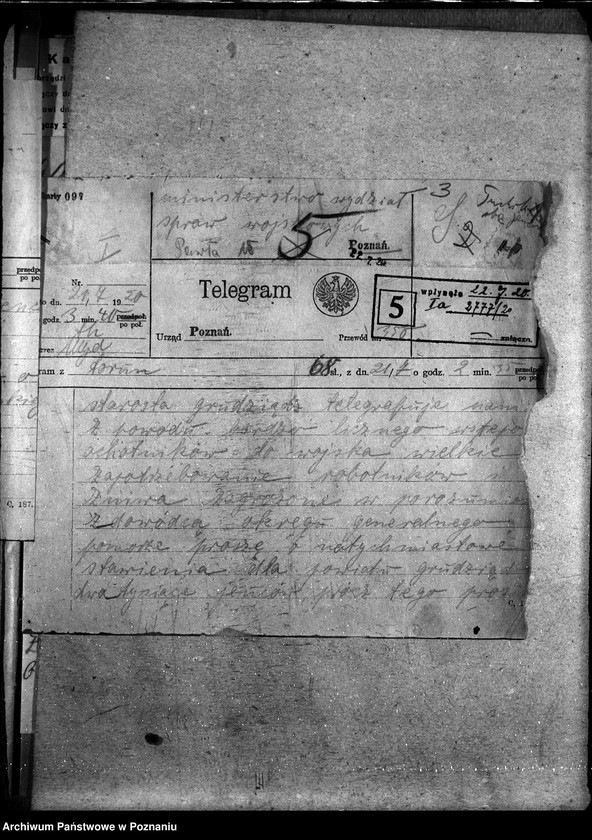 ministerstwo wydział
spraw wojskowych
5
3
Poznań.
22.7.20
Nr.
to dn. 21,7 1920
godz. 3 min. 40 przedpoł.
po poł.
Telegram
Urząd Poznań.
Przewód
5
wpłynęło 22.7.20.
Ia 2777/20
załączn.
ram z Toruń 68 sł., z dn. 21,7 o godz. 2 min. przedpoł.
po poł.
starosta grudziądz telegrafuje nam
z powodu bardzo licznego wstępo
ochotników do wojska wielkie
zapotrzebowanie robotników
żniwa zagrożone w porozumie
z dowódcą okręgu generalnego
pomorze proszę o natychmiastowe
stawienia dla powiatu grudziąd
dwa tysiące jeńców prócz tego prosz
C. 187.
Archiwum Państwowe w Poznaniu